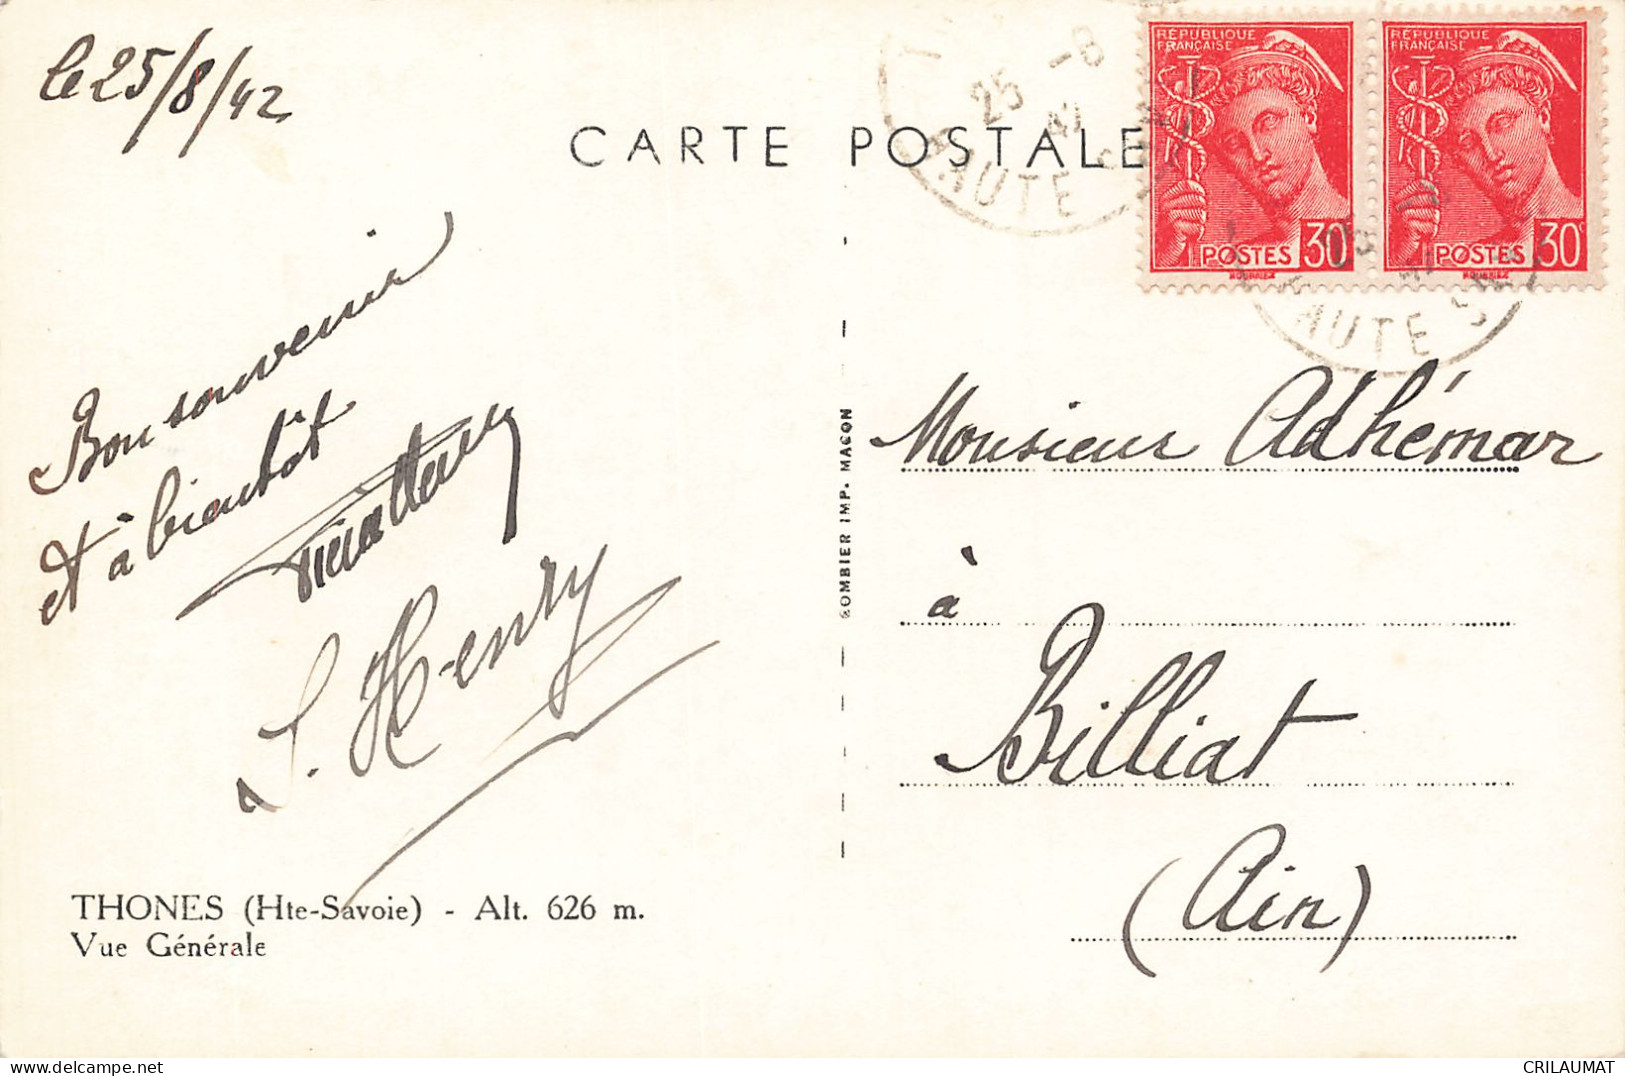 le 25/8/42
CARTE POSTALE
RÉPUBLIQUE
FRANÇAISE
POSTES 30c
RÉPUBLIQUE
FRANÇAISE
POSTES 30c
25 -8
HAUTE
HAUTE
Bon souvenir
et à bientôt
S. Henry
COMBIER IMP. MACON
Monsieur Adhémar
à
Billiat
(Ain)
THONES (Hte-Savoie) - Alt. 626 m.
Vue Générale
CRILAUMAT